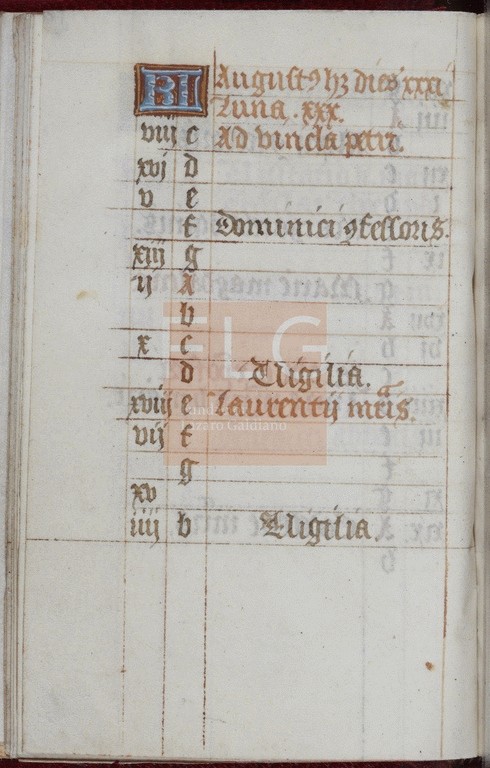 KL Augustꝰ hꝫ dies xxxi
Luna .xxx.
viij c Ad vincla petri.
xvj d
v e
f Dominici ꝯfessoris.
xiij g
ij A
b
x c
d Vigilia.
xviij e Laurentij mr̃is.
vij f
g
xv
iiij b Vigilia.
FLG
Lázaro Galdiano